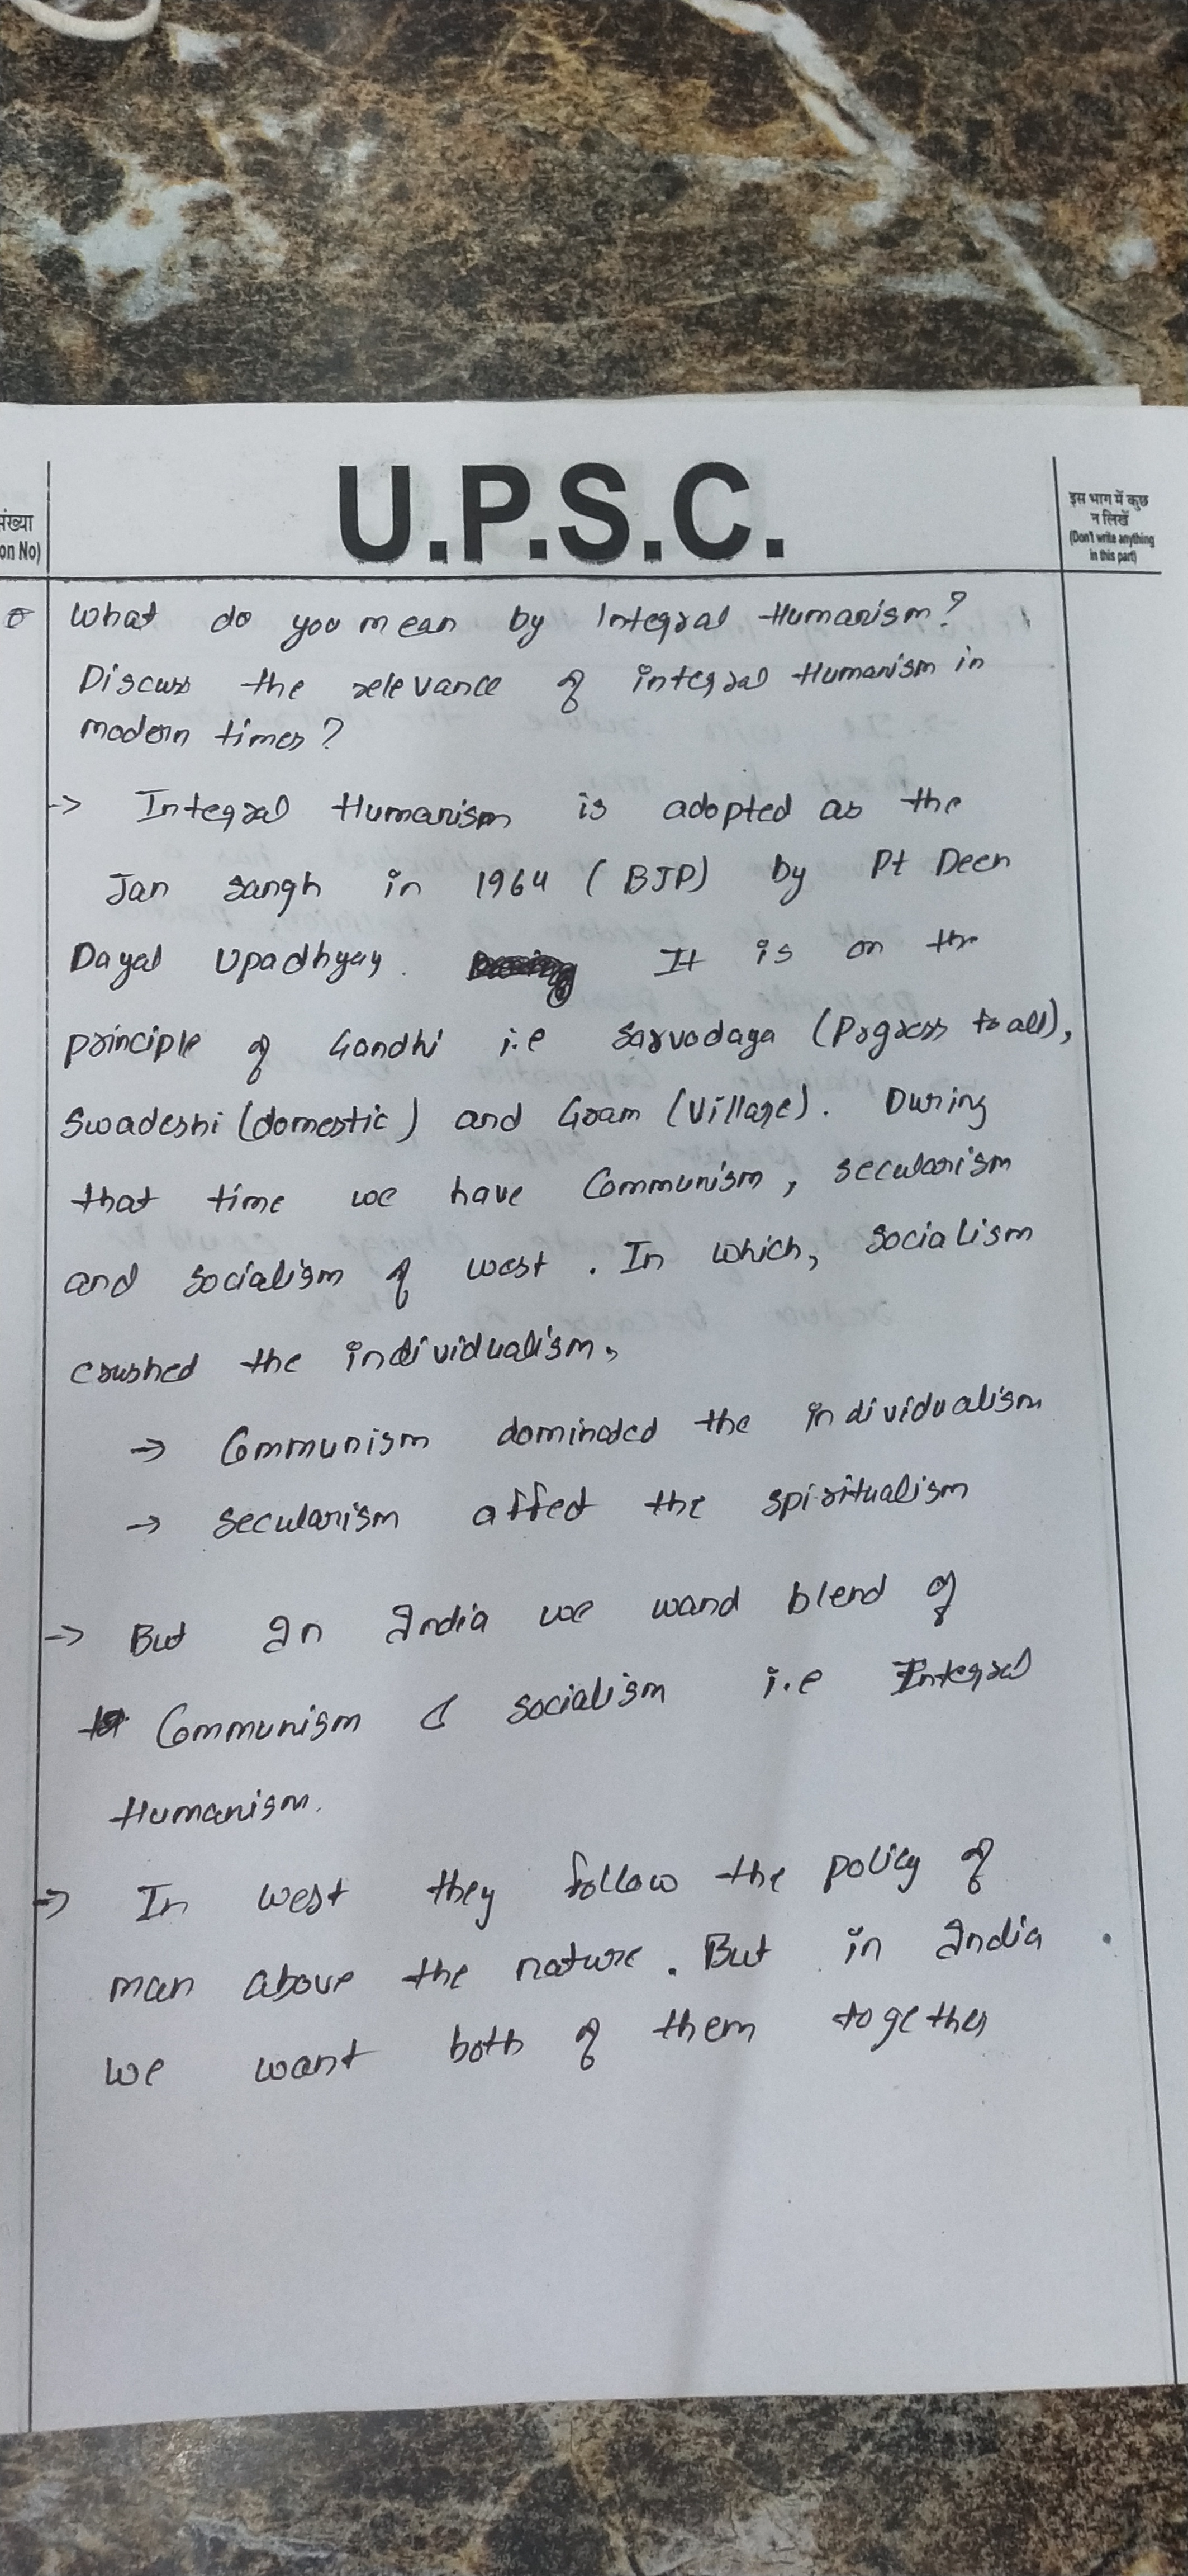 U.P.S.C.
संख्या
on No)
इस भाग में कुछ
न लिखें
(Don't write anything
in this part)
What do you mean by Integral Humanism?
Discuss the relevance of integral Humanism in
modern times?
-> Integral Humanism is adopted as the
Jan Sangh in 1964 (BJP) by Pt Deen
Dayal Upadhyay. It is on the
principle of Gandhi i.e Sarvodaya (Progress to all),
Swadeshi (domestic) and Gram (Village). During
that time we have Communism, secularism
and socialism of west. In which, socialism
crushed the individualism,
-> Communism dominated the individualism
-> secularism affed the spiritualism
-> But In India we wand blend of
Communism & socialism i.e Integral
Humanism.
-> In west they follow the policy of
man above the nature. But in India
we want both of them together